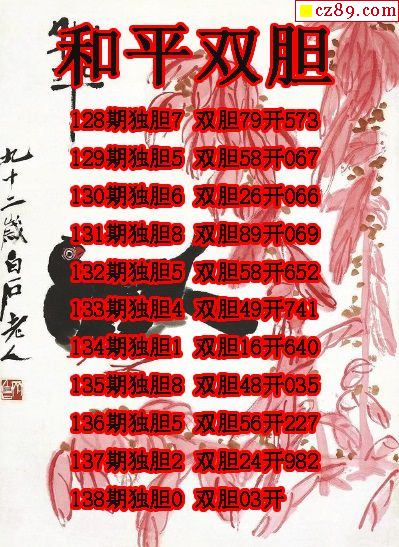 cz89.com
和平双胆
128期独胆7 双胆79开573
129期独胆5 双胆58开067
130期独胆6 双胆26开066
131期独胆8 双胆89开069
132期独胆5 双胆58开652
133期独胆4 双胆49开741
134期独胆1 双胆16开640
135期独胆8 双胆48开035
136期独胆5 双胆56开227
137期独胆2 双胆24开982
138期独胆0 双胆03开
九十二岁白石老人